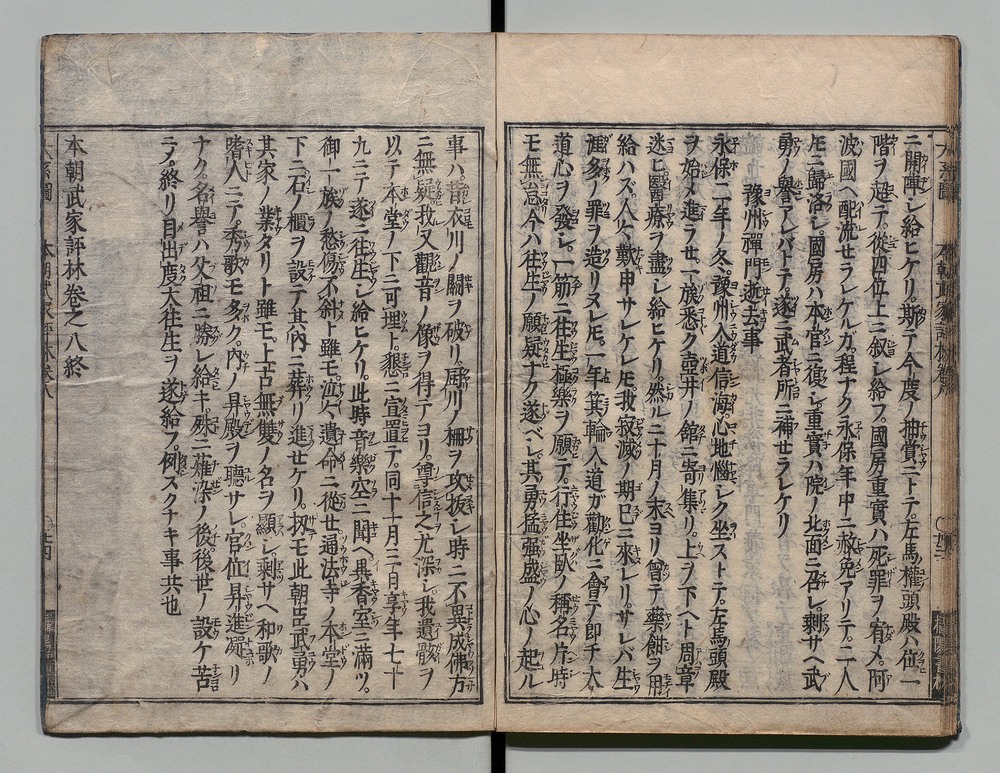 ニ開陣シ給ヒケリ。斯テ今度ノ抽賞ニトテ。左馬權頭殿ハ位一
階ヲ超テ。從四位上ニ叙シ給フ。國房重實ハ死罪ヲ宥メ。阿
波國ヘ配流セラレケルカ。程ナク永保年中ニ赦免アリテ。二人
モニ歸洛シ。國房ハ本官ニ復シ重實ハ院ノ北面ニ召レ。剩サヘ武
勇ノ譽アレバトテ。遂ニ武者所ニ補セラレケリ
豫州禪門逝去事
永保二年ノ冬。豫州入道信海。心地惱シク坐ストテ。左馬頭殿
ヲ始メ進ラセ。一族悉ク壺井ノ館ニ寄集リ。上ヲ下ヘト周章
迷ヒ。醫療ヲ盡シ給ヒケリ。然ルニ十月ノ末ヨリ。曾テ藥餌ヲ用
給ハズ。人々歎申サレケレモ。我寂滅ノ期已ニ來レリ。サレバ生
涯多ノ罪ヲ造リヌレモ。一年箕輪入道ガ勸化ニ會テ即チ大
道心ヲ發シ。一筋ニ往生極樂ヲ願テ。行住坐臥ノ稱名片時
モ無怠今ハ往生ノ願疑ナク遂ベシ。其勇猛强盛ノ心ノ起ル
事ハ。昔衣川ノ關ヲ破リ。厨川ノ柵ヲ攻拔シ時ニ不異成佛方
ニ無疑我又觀音ノ像ヲ得テヨリ。尊信之尤深シ。我遺骸ヲ
以テ本堂ノ下ニ可埋ト。懇ニ宣置テ。同十一月三日享年七十
九ニテ遂ニ往生シ給ヒケリ。此時音樂空ニ聞ヘ異香室ニ滿ツ。
御一族ノ愁傷不斜ト雖モ。泣々遺命ニ從セ通法寺ノ本堂ノ
下ニ石ノ櫃ヲ設テ其內ニ葬リ進セケリ。扨モ此朝臣武勇ハ
其家ノ業タリト雖モ。上古無雙ノ名ヲ顯シ剩サヘ和歌ノ
嗜人ニテ。秀歌モ多ク。內ノ昇殿ヲ聽サレ。官位昇進滯リ
ナク。名譽ハ父祖ニ勝レ給キ。殊ニ薙染ノ後。後世ノ設ケ苦
ニノ。終リ目出度大往生ヲ遂給フ。例スクナキ事共也
本朝武家評林卷之八終